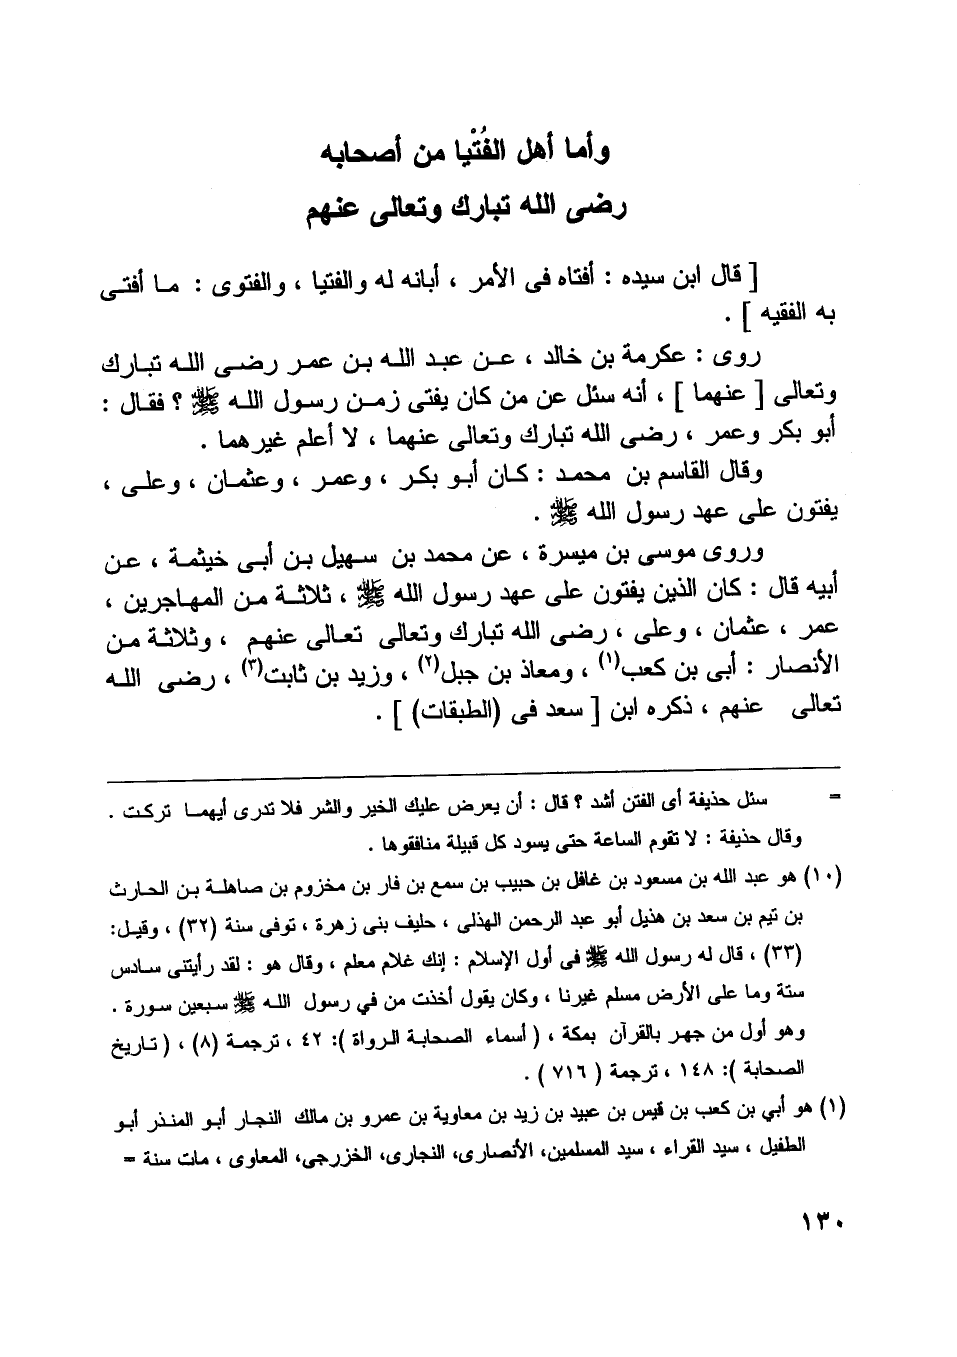 وأما أهل الفُتْيا من أصحابه
رضى الله تبارك وتعالى عنهم
[ قال ابن سيده : أفتاه فى الأمر ، أبانه له والفتيا ، والفتوى : ما أفتـى
به الفقيه ] .
روى : عكرمة بن خالد ، عـن عبد اللـه بـن عمر رضـى اللـه تبـارك
وتعالى [ عنهما ] ، أنه سئل عن من كان يفتى زمـن رسـول اللـه ﷺ ؟ فقـال :
أبو بكر وعمر ، رضـى الله تبارك وتعالى عنهما ، لا أعلم غيرهما .
وقال القاسم بن محمـد : كـان أبـو بكـر ، وعمـر ، وعثمـان ، وعلـى ،
يفتون على عهد رسول الله ﷺ .
وروى موسى بن ميسرة ، عن محمد بن سـهيل بـن أبـى خيثمـة ، عـن
أبيه قال : كان الذين يفتون على عهد رسول الله ﷺ ، ثلاثـة مـن المهـاجرين ،
عمر ، عثمان ، وعلى ، رضى الله تبارك وتعالى تعـالى عنهـم ، وثلاثـة مـن
الأنصار : أبى بن كعب(١) ، ومعاذ بن جبل(٢) ، وزيد بن ثابت(٣) ، رضـى اللـه
تعالى عنهم ، ذكره ابن [ سعد فى (الطبقات) ] .
= سئل حذيفة أى الفتن أشد ؟ قال : أن يعرض عليك الخير والشر فلا تدرى أيهمـا تركـت .
وقال حذيفة : لا تقوم الساعة حتى يسود كل قبيلة منافقوها .
(١٠) هو عبد الله بن مسعود بن غافل بن حبيب بن سمع بن فار بن مخزوم بن صاهلـة بـن الحـارث
بن تيم بن سعد بن هذيل أبو عبد الرحمن الهذلى ، حليف بنى زهرة ، توفى سنة (٣٢) ، وقيـل:
(٣٣) ، قال له رسول الله ﷺ فى أول الإسلام : إنك غلام معلم ، وقال هو : لقد رأيتنى سـادس
ستة وما على الأرض مسلم غيرنا ، وكان يقول أخذت من في رسول اللـه ﷺ سـبعين سـورة .
وهو أول من جهـر بالقرآن بمكة ، ( أسماء الصحابـة الـرواة ): ٤٢ ، ترجمـة (٨) ، ( تـاريخ
الصحابة ): ١٤٨ ، ترجمة ( ٧١٦ ) .
(١) هو أبي بن كعب بن قيس بن عبيد بن زيد بن معاوية بن عمرو بن مالك النجـار أبـو المنـذر أبـو
الطفيل ، سيد القراء ، سيد المسلمين، الأنصارى، النجارى، الخزرجى، المعاوى ، مـات سنة =
١٣٠